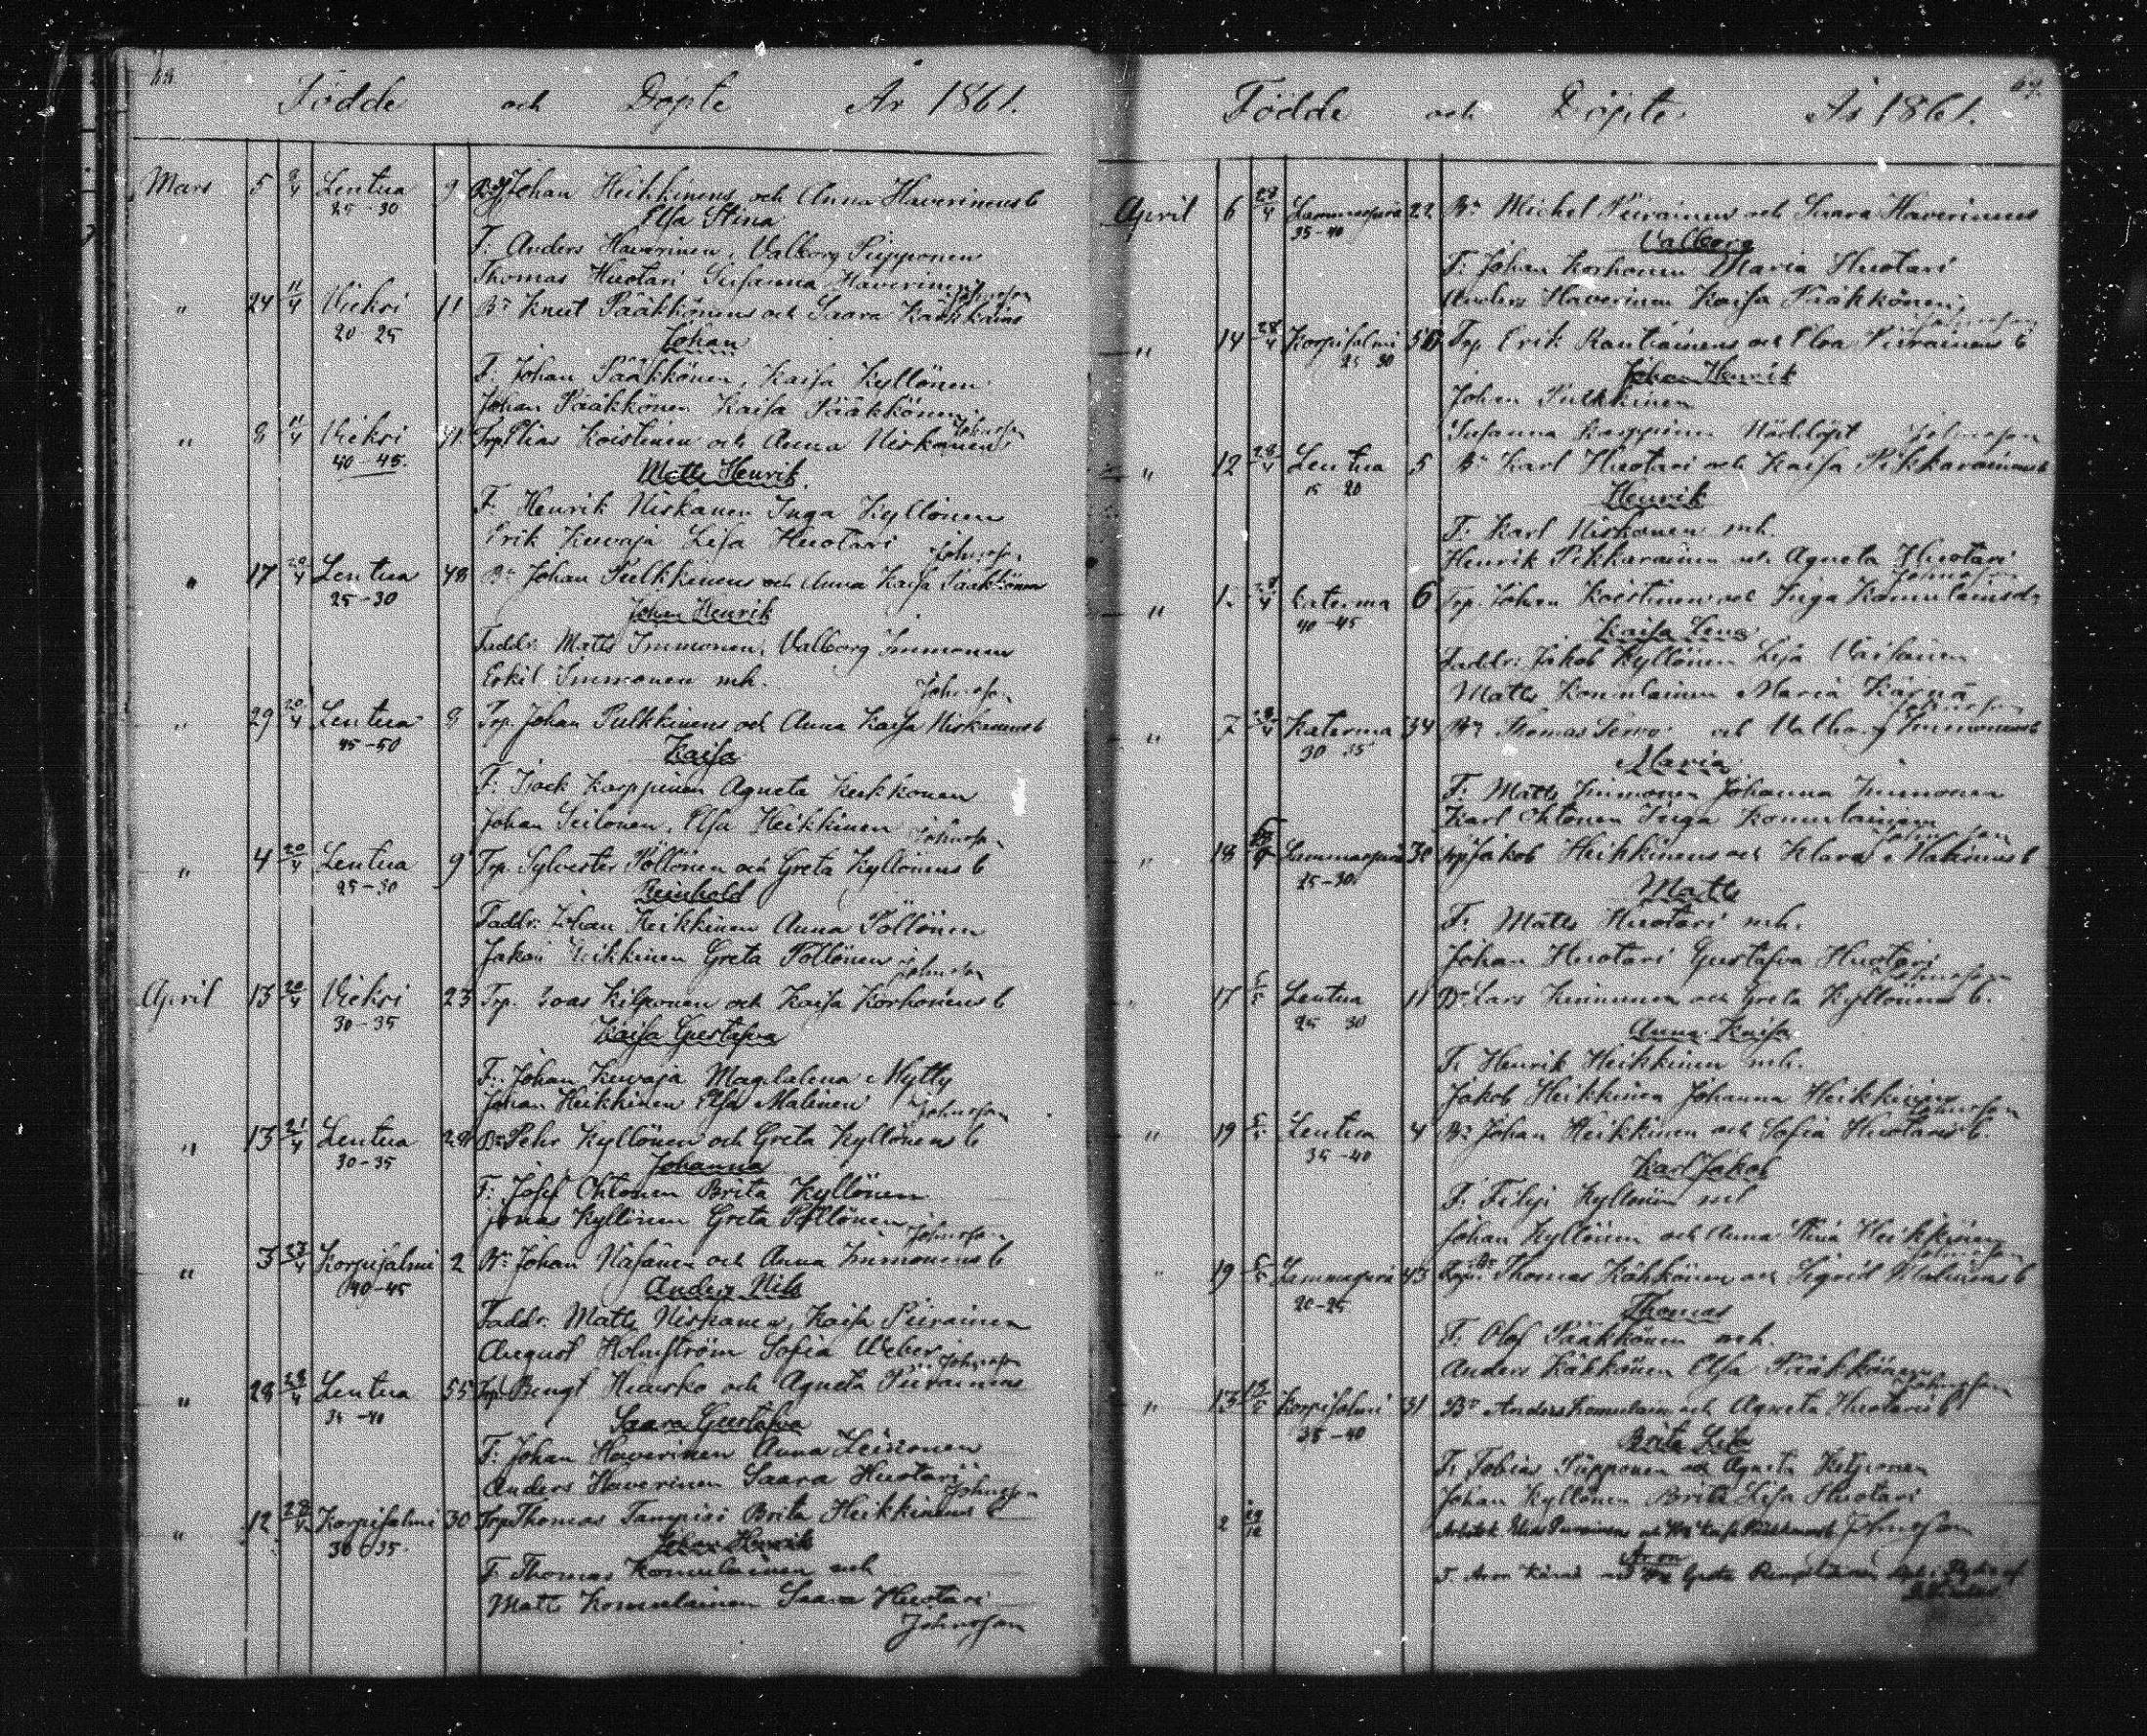 Födde och Döpte År 1861.
Mars 5 9/4 Lentua 9 Johan Heikkinens och Anna Haverinens b
25-30 Elsa Stina
F: Anders Haverinen, Valborg Piipponen
Thomas Huotari Susanna Haverinen
" 24 11/4 Vieksi 11 Bn Knut Pääkkönens och Saara
20 25 Johan
F. Johan Pääkkönen, Kaisa Kyllönen
Johan Pääkkönen Kaisa Pääkkönen
Johnsson
" 8 11/4 Vieksi 41 Trp Elias Koistinen och Anna Niskanens
40-45. Matts Henrik
F. Henrik Niskanen Inga Kyllönen
Erik Kuvaja Lisa Huotari Johnsson
" 17 20/4 Lentua 48 Bn Johan Pulkkinens och Anna Kaisa Pääkkönens
25-30 Johan Henrik
Faddr. Matts Immonen, Valborg Immonen
Eskil Immonen mh. Johnsson
" 29 20/4 Lentua 8 Trp. Johan Pulkkinens och Anna Kaisa Niskanens b
45-50 Kaisa
F: Isack Karppinen Agneta Keskkonen
Johan Seilonen, Elsa Heikkinen Johnsson
" 4 20/4 Lentua 9 Trp. Sylvester Pöllönen och Greta Kyllönens b
25-30 Reinhold
Faddr. Johan Heikkinen Anna Pöllönen
Jakob Heikkinen Greta Pöllönen Johnsson
April 13 20/4 Vieksi 23 Trp. Joas Kilponen och Kaisa Korhonens b
30-35 Kaisa Gustafva
F. Johan Kuvaja Magdalena Mylly
Johan Heikkinen Elsa Malinen Johnsson
" 13 21/4 Lentua 29 Bn Pehr Kyllönen och Greta Kyllönens b
30-35 Johanna
F: Josef Ohtonen Brita Kyllönen
Jonas Kyllönen Greta Pöllönen Johnsson
" 3 27/4 Korpisalmi 2 Bn Johan Väisänen och Anna Immonens b
40-45 Anders Nils
Faddr. Matts Niskanen, Kaisa Piirainen
August Holmström Sofia Weber Johnsson
" 28 28/4 Lentua 55 Trp. Bengt Huusko och Agneta Piirainens
35-40 Saara Gustafva
F: Johan Haverinen Anna Leinonen
Anders Haverinen Saara Huotari Johnsson
" 12 28/4 Korpisalmi 30 Trp Thomas Tampisi Brita Heikkinens b
30 35. Johan Henrik
F Thomas Komulainen mh
Matts Komulainen Saara Huotari
Johnsson
67.
Födde och Döpte År 1861.
April 6 28/4 Lammasperä 22 Bn Michel Piirainen och Saara Haverinens
35-40 Valborg
F. Johan Korhonen Maria Huotari
Anders Haverinen Kaisa Pääkkönen
Johnsson
" 14 28/4 Korpisalmi Trp Erik Rautiainens och Elsa Piirainens b
25 30 Johan Henrik
Johan Pulkkinen
Susanna Karppinen Nöddöpt Johnsson
" 12 28/4 Lentua 5 Bn Karl Huotari och Kaisa Pikkarainens b
15 20 Henrik
F. Karl Niskanen mh.
Henrik Pikkarainen och Agneta Huotari
Johnsson
" 28/4 Katerma 6 Trp. Johan Koistinen och Inga Komulainens b
40-45 Kaisa Lena
Faddr: Jakob Kyllönen Lisa Väisänen
Matts Komulainen Maria Kärnä
Johnsson
" 7 28/4 Katerma 34 Bn Thomas Servo och Valborg Immonens b
30 35 Maria
F. Matts Immonen Johanna Immonen
Karl Ohtonen Inga Komulainen
Johnsson
" 18 Lammasperä 30 Trp Jakob Heikkinens och Klara Malinens b
25-30 Matts
F. Matts Huotari mh.
Johan Huotari Gustafva Huotari
Johnsson
" 17 5/5 Lentua 11 Bn Lars Kinnunen och Greta Kyllönens b.
25 30 Anna Kaisa
F. Henrik Heikkinen mh.
Jakob Heikkinen Johanna Heikkinen
Johnsson
" 19 5/5 Lentua 4 Bn Johan Heikkinen och Sofia Huotaris b.
35-40 Karl Jakob
F. Filip Kyllönen mh
Johan Kyllönen och Anna Stina Heikkinen
Johnsson
" 19 5/5 Lammasperä 43 Thomas Kähkönen och Sigrid Malinens b
20-25 Thomas
F. Olof Pääkkönen mh.
Anders Kähkönen Elsa Pääkkönen
Johnsson
" 13 Korpisalmi 31 Bn Anders Komulain och Agneta Huotaris b
35-40 Brita Lisa
F. Tobias Piipponen och Agneta Kilponen
Johan Kyllönen Brita Lisa Huotari
2 29/12 Johnsson
Aron
F. Aron Kärnä Greta